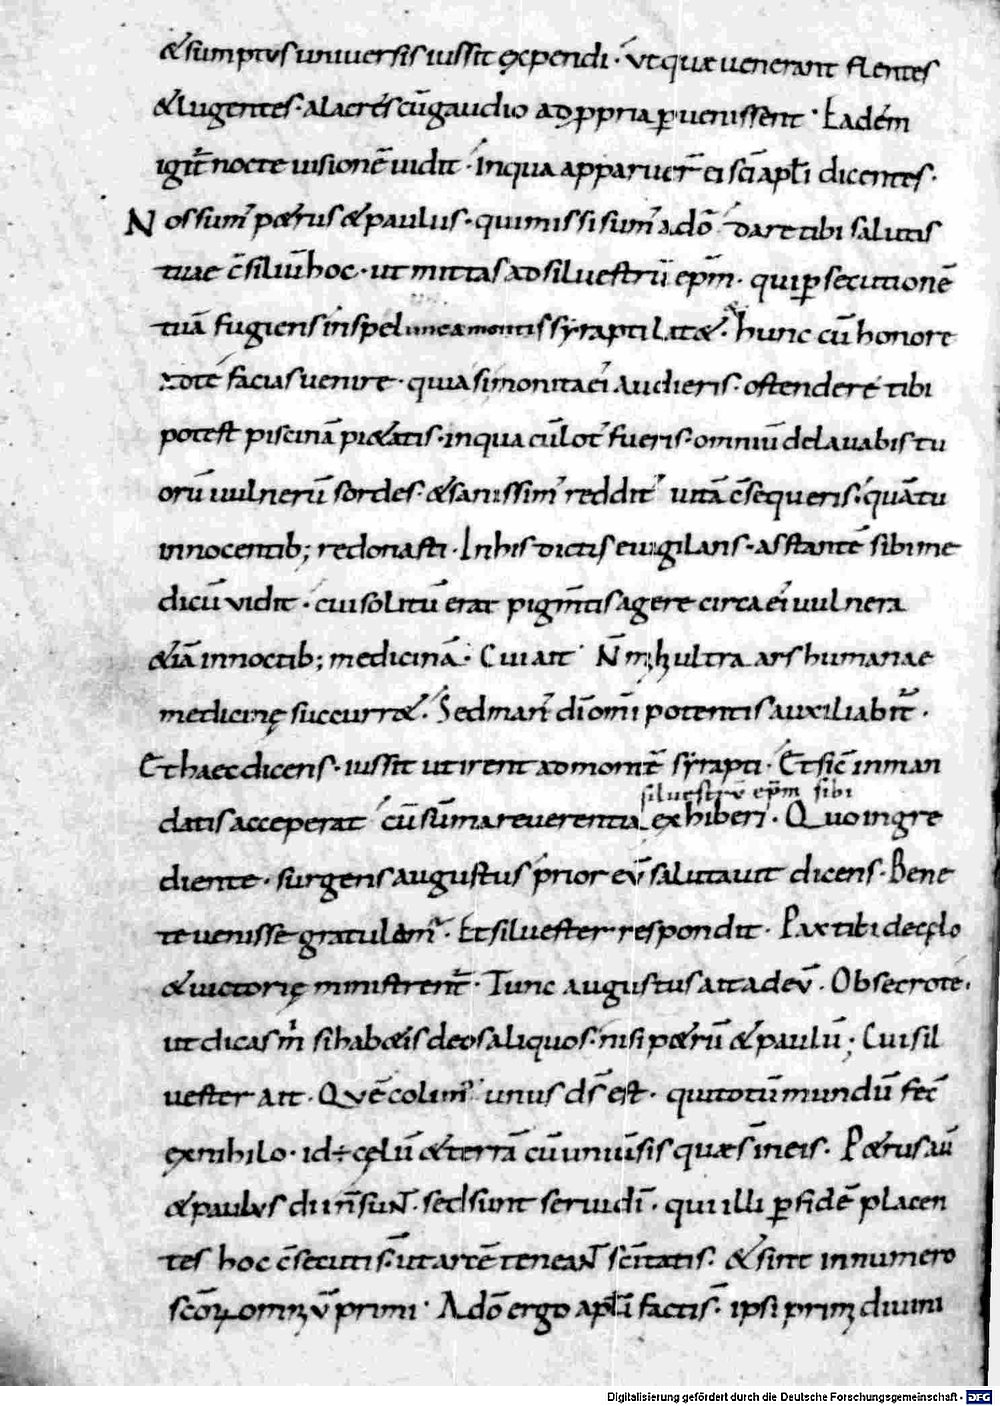 &sumptus uniuersis iussit expendi · ut quae uenerant flentes
& lugentes · alacres cū gaudio ad ꝓpria ꝑuenissent · Eadem
igit̄ nocte uisionē uidit · In qua apparuer̄ ei sc̄i apl̄i dicentes ·
Nos sum̄ p&rus & paulus · qui missi sum̄ a dō dare tibi salutis
tuae c̄siliū hoc · ut mittas ad siluestrū ep̄m · qui ꝑsecutionē
tuā fugiens in spelunca montis syrapti latit& · hunc cū honore
ad te facias uenire · quia si monita ei' audieris · ostendere tibi
potest piscinā pi&atis · in qua cū lot' fueris · omniū delauabis tu
orū uulnerū sordes · & sanissim' reddit' uitā c̄sequeris · quā tu
innocentib; redonasti · In his dictis euigilans · asstantē sibi me
dicū vidit · cui solitū erat pigm̄tis agere circa ei' uulnera
&iā in noctib; medicinā · Cui ait N̄ m ultra ars humanae
medicinę succurr& · Sed man' dī om̄ipotentis auxiliabit̄ ·
Et haec dicens · iussit ut irent ad montē syrapti · Et sic̄ in man
siluestrū ep̄m sibi
datis acceperat cū sūma reuerentia exhiberi · Quo ingre
diente · surgens augustus prior eū salutauit dicens · Bene
te uenisse gratulam̄ · Et siluester respondit · Pax tibi de cęlo
& uictorię ministrent̄ · Tunc augustus ait ad eū · Obsecro te ·
ut dicas m̄ si hab&is deos aliquos · nisi p&rū & paulū ; Cui sil
uester ait · Quē colim' unus d̄s est · qui totū mundū fec̄
ex nihilo · id ÷ cęlū & terrā cū uniūsis quae s̄ in eis · P&rus aū
& paulus dii n̄ sunt · sed sunt serui dī · qui illi ꝑ fidē placen
tes hoc c̄secuti s̄ · ut arcē teneant sc̄itatis · & sint in numero
sc̄oꝝ om̄ primi · A dō ergo apl̄i facti s̄ · ipsi prim diuini
Digitalisierung gefördert durch die Deutsche Forschungsgemeinschaft - DFG